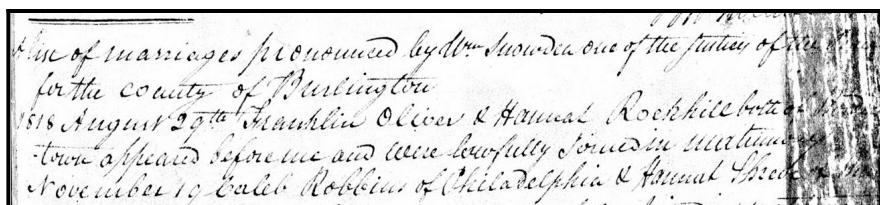 A list of marriages pronounced by Wm Snowden one of the Justices of the
for the county of Burlington
1818 August 29th Franklin Oliver & Hannah Rockhill both of
town appeared before me and were lawfully Joined in matrimony
November 19 Caleb Robbins of Philadelphia & Hannah Shreve